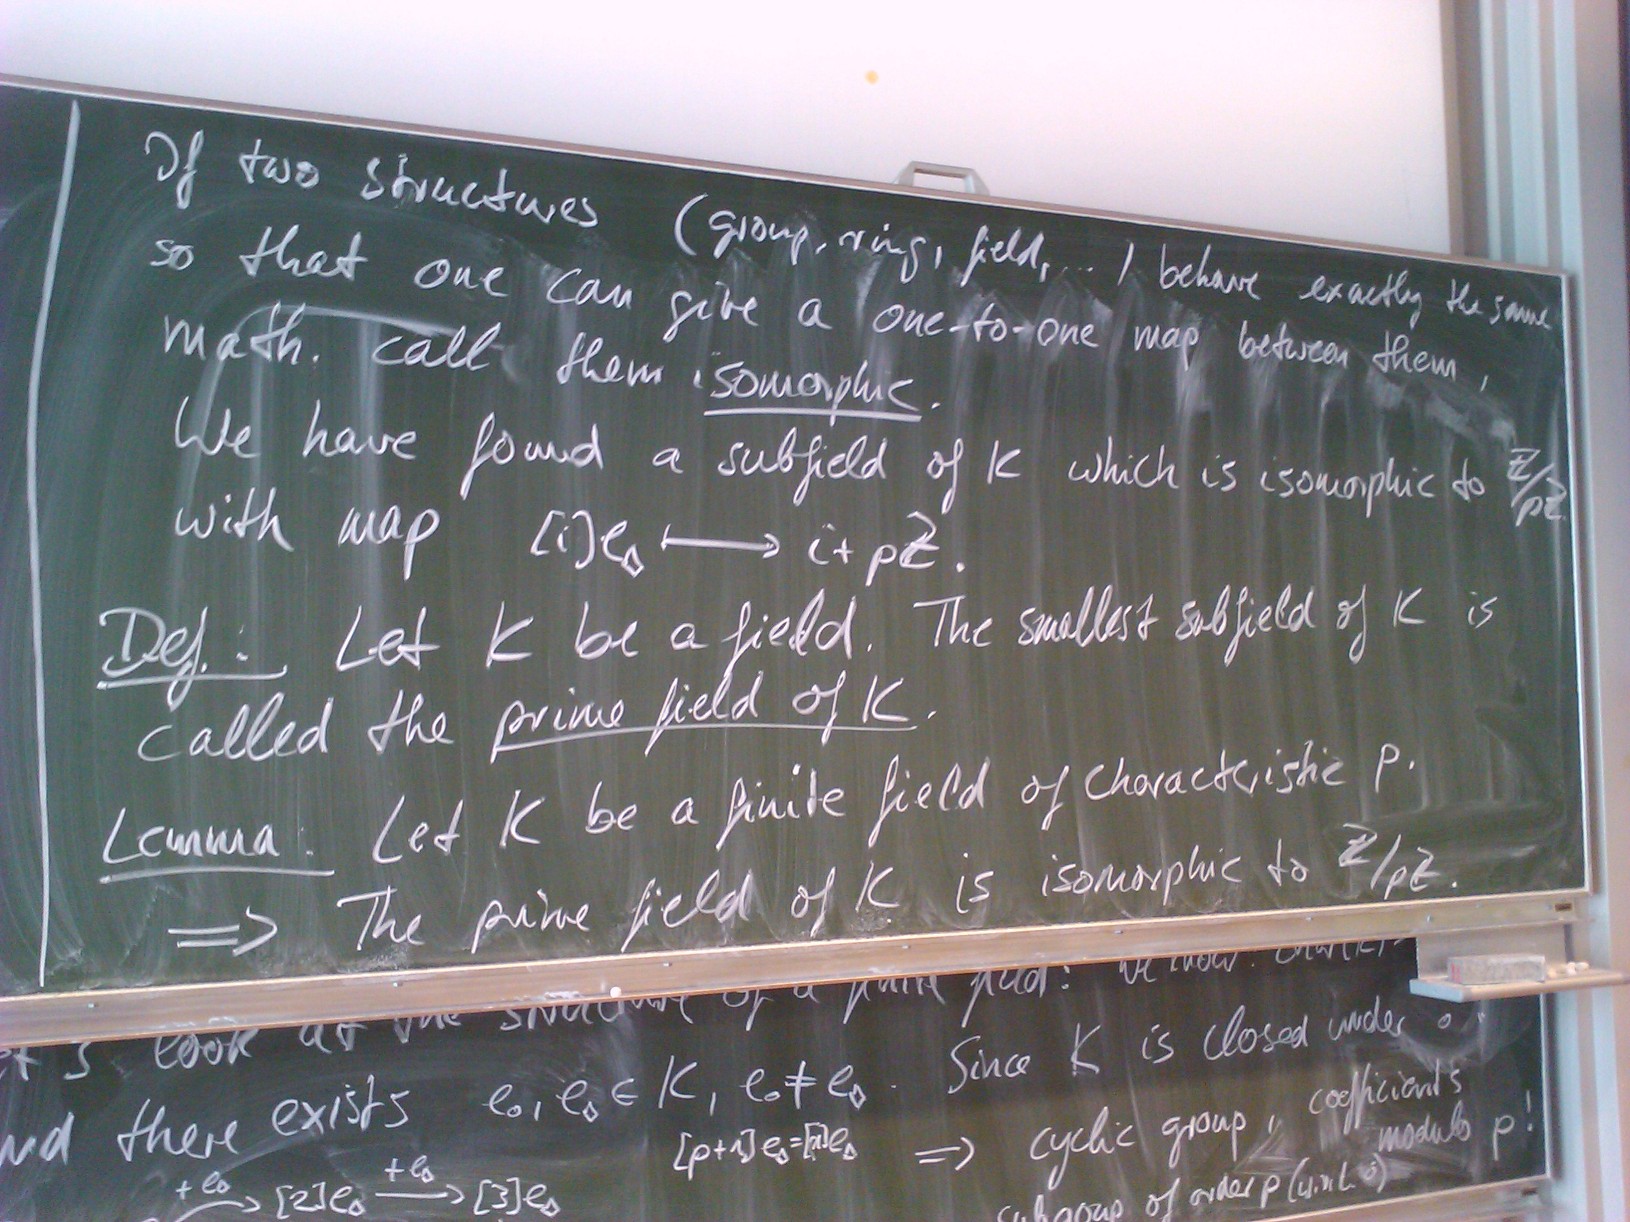 If two structures (group, ring, field, ... ) behave exactly the same
so that one can give a one-to-one map between them,
math. call them isomorphic.
We have found a subfield of K which is isomorphic to ℤ/pℤ
with map [i]e_◊ ⟼ i + pℤ.
Def.: Let K be a field. The smallest subfield of K is
called the prime field of K.
Lemma: Let K be a finite field of characteristic p.
⟹ The prime field of K is isomorphic to ℤ/pℤ.
look at the structure of a finite field! We know:
there exists e_∘, e_◊ ∈ K, e_∘ ≠ e_◊. Since K is closed under ∘,
[p+1]e_◊=[1]e_◊ ⟹ cyclic group, coefficients modulo p!
+e_◊ → [2]e_◊ +e_◊ → [3]e_◊
subgroup of order p